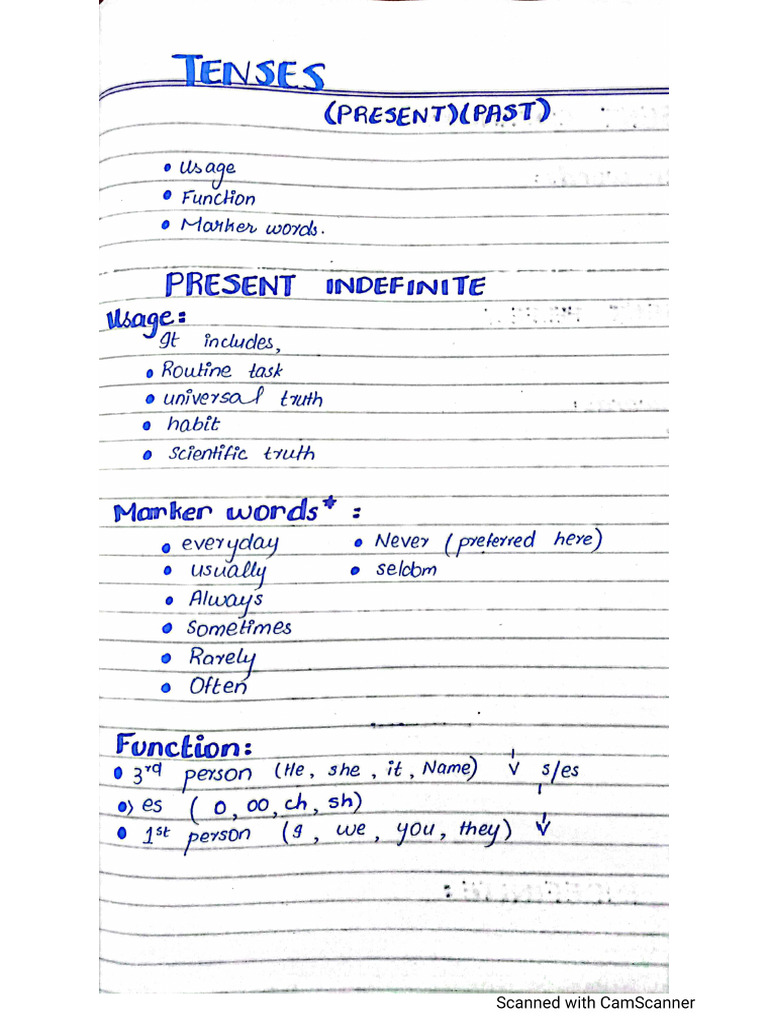 TENSES
(PRESENT)(PAST)
• Usage
• Function
• Marker words.
PRESENT INDEFINITE
Usage:
It includes,
• Routine task
• universal truth
• habit
• scientific truth
Marker words* :
• everyday • Never (preferred here)
• usually • selcbm
• Always
• Sometimes
• Rarely
• Often
Function:
• 3rd person (He, she, it, Name) V s/es
•) es ( o, oo, ch, sh)
• 1st person (I, we, you, they) V
Scanned with CamScanner